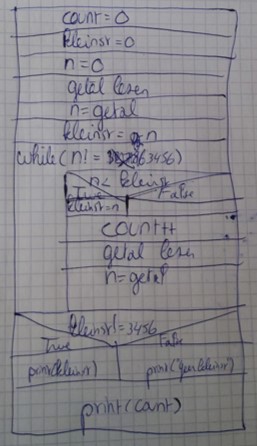 count = 0
kleinst = 0
n = 0
getal lezen
n = getal
kleinst = n
while(n != 3456)
n < kleinst
True False
kleinst = n
count++
getal lezen
n = getal
kleinst != 3456
True False
print(kleinst) print("geen kleinste")
print(count)